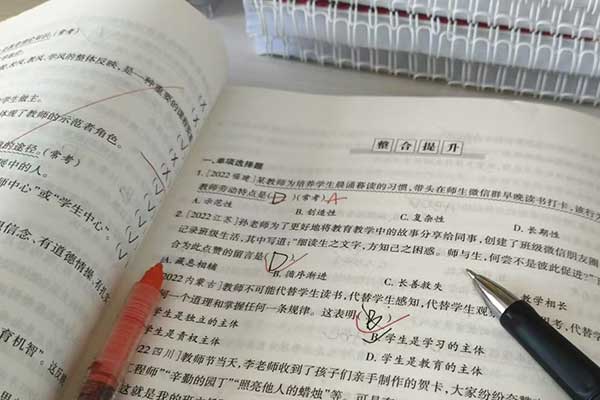 （常考）
校风、教风、学风的整体反映，是一种重要的课程资源
学生做主。
体现了教师的示范者角色。
的途径。（常考）
现中的人。
师中心”或“学生中心”。
信念、有道德情操、有扎
育机智”。这反映
整合提升
一、单项选择题
1.[2022福建]某教师为培养学生晨诵暮读的习惯，带头在师生微信群早晚读书打卡，该行为
教师劳动特点是（D）（常考）A
A. 示范性 B. 创造性 C. 复杂性 D. 长期性
2.[2022江苏]孙老师为了更好地将教育教学中的故事分享给同事，创建了班级微信朋友圈
记录班级生活，其中写道：“细读生之文字，方知己之困惑。师与生，何尝不是彼此促进？”
合为此点赞的留言是（D）
A. 藏息相辅 B. 循序渐进 C. 长善救失 教学相长
[2022内蒙古]教师不可能代替学生读书，代替学生感知，代替学生观 思考，代替学
何一个道理和掌握任何一条规律。这表明（B）
学生是独立的主体 B. 学生是学习的主体
学生是责权主体 D. 学生是教育的主体
2022四川]教师节当天，李老师收到了孩子们亲手制作的贺卡，大家纷纷
工程师”“辛勤的园丁”“照亮他人的蜡烛”等。